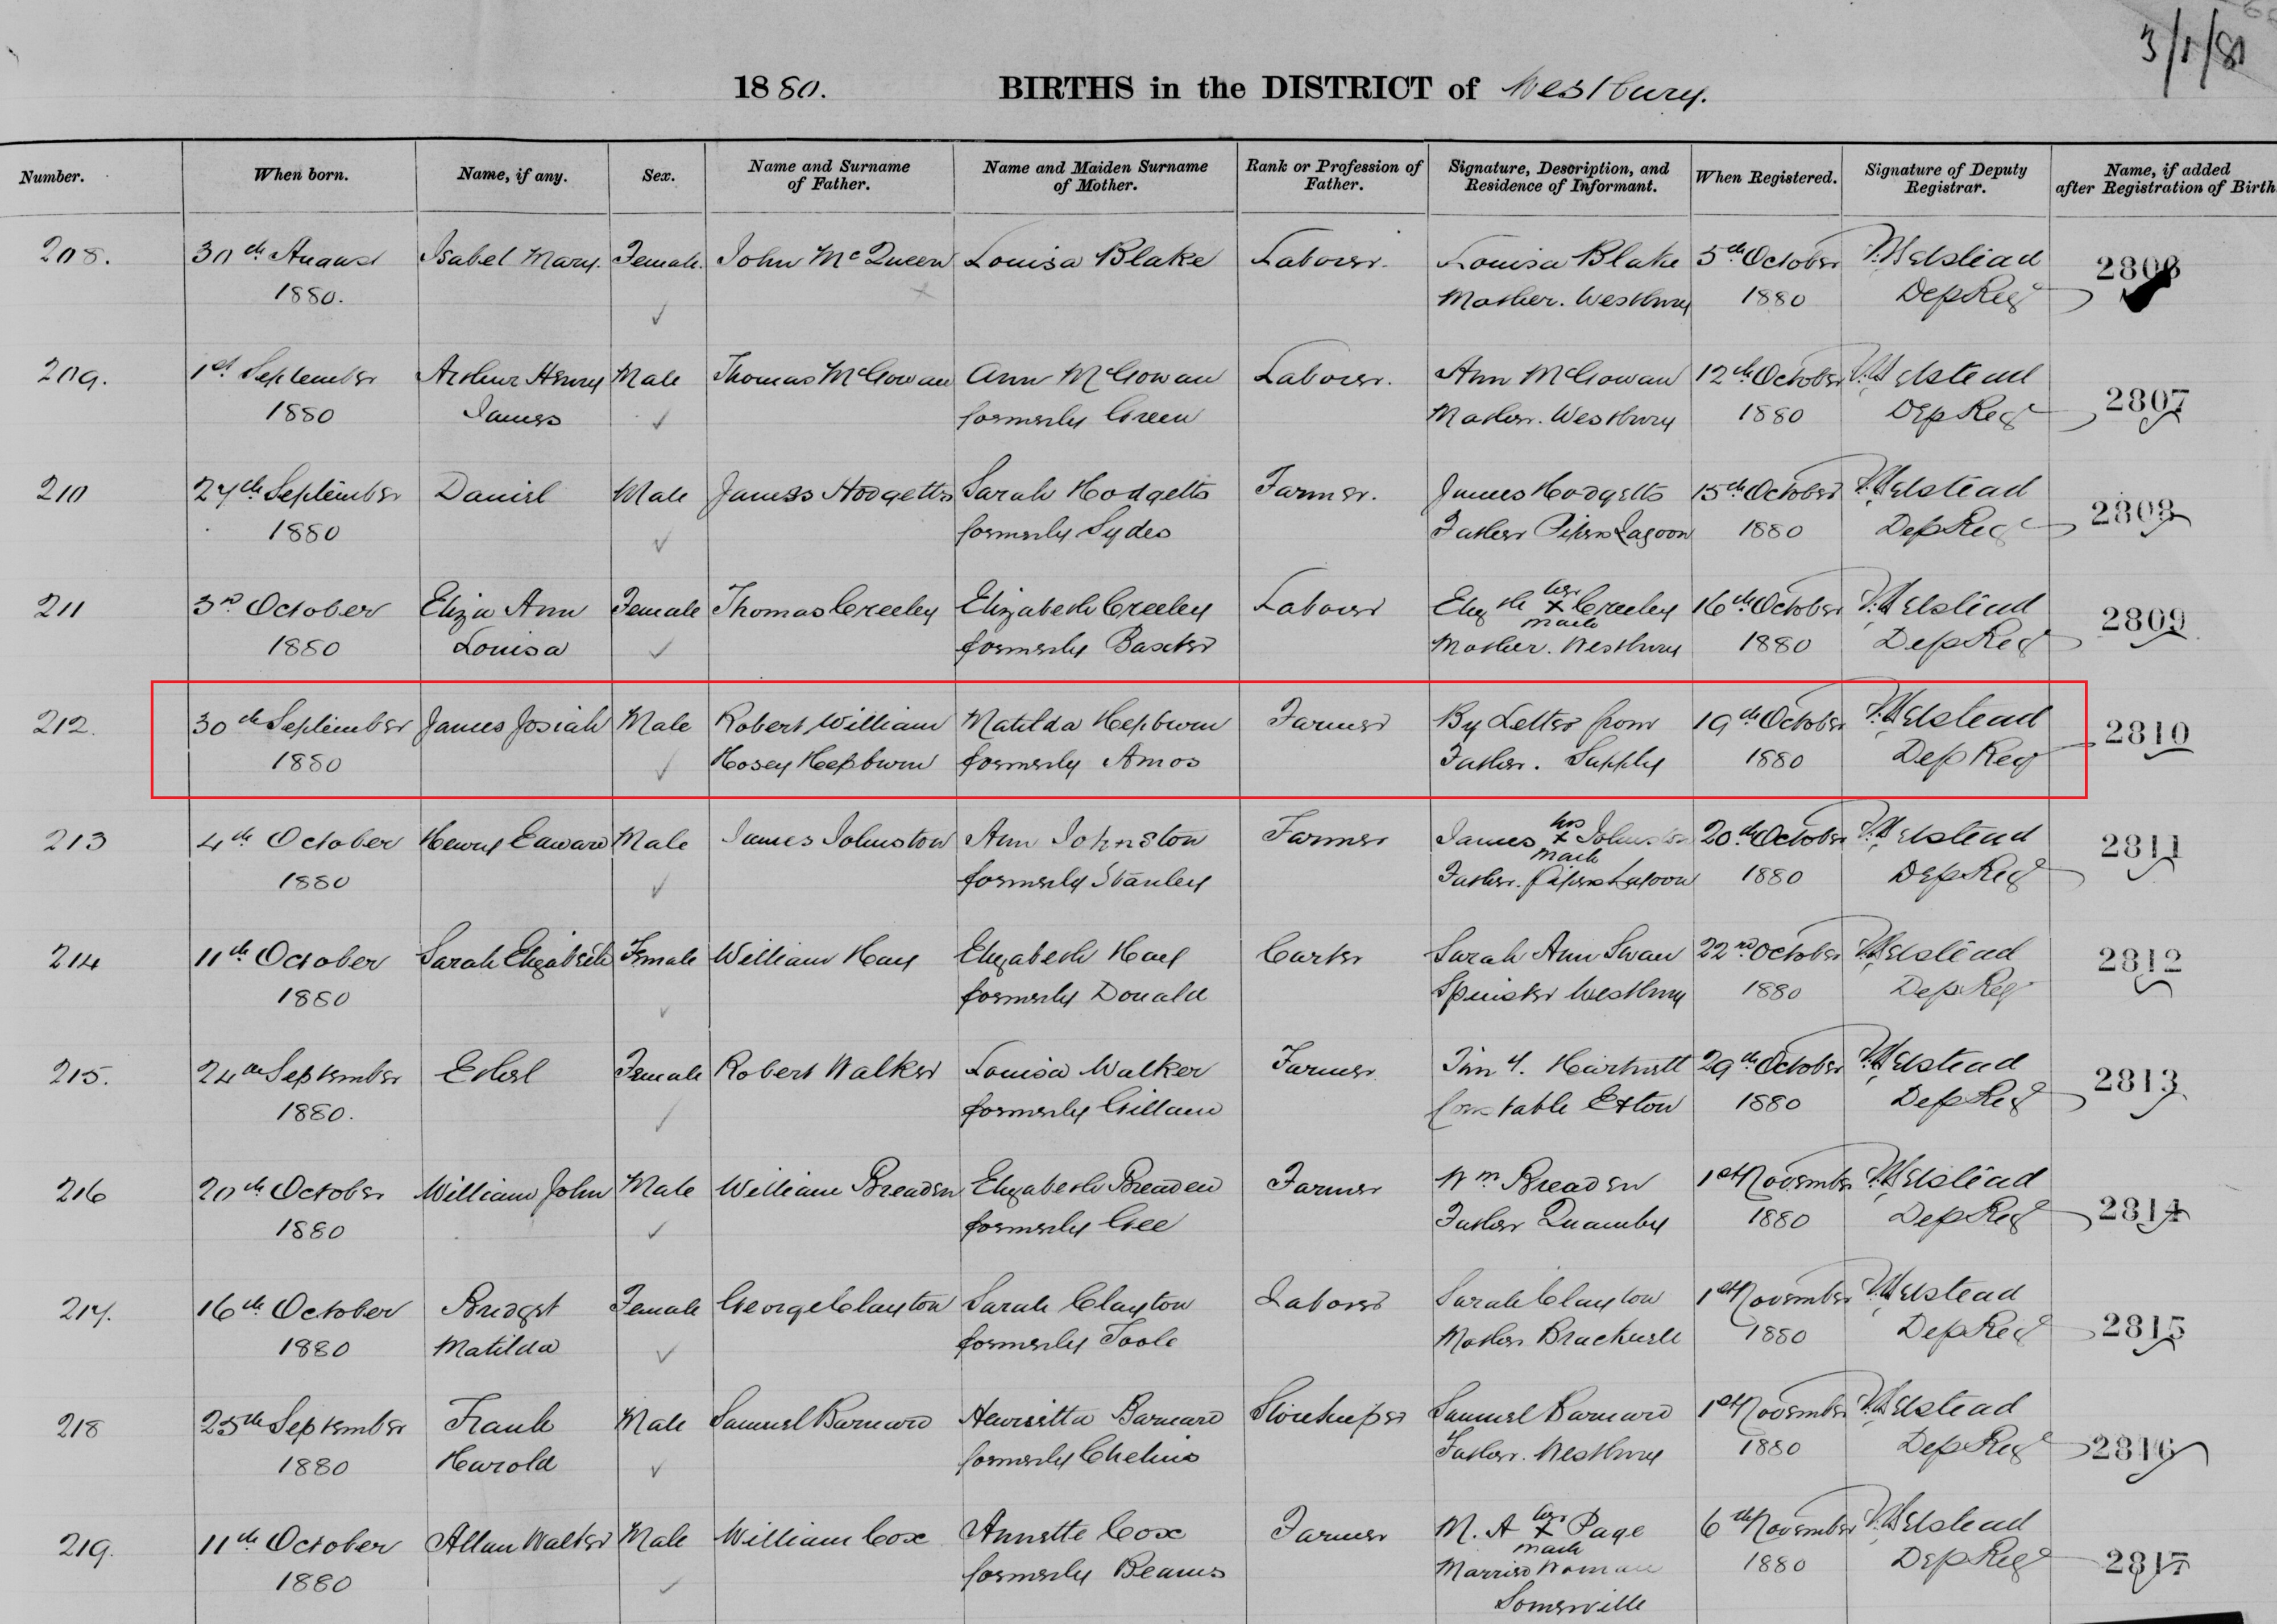 3/1/81
1880. BIRTHS in the DISTRICT of Westbury.
Number. When born. Name, if any. Sex. Name and Surname of Father. Name and Maiden Surname of Mother. Rank or Profession of Father. Signature, Description, and Residence of Informant. When Registered. Signature of Deputy Registrar. Name, if added after Registration of Birth
208. 30th August Isabel Mary. Female. John McQueen Louisa Blake Labourer. Louisa Blake 5th October Elstead 2806
1880. Mother. Westbury 1880 Dep Reg
209. 1st September Arthur Henry Male Thomas McGowan Ann McGowan Labourer. Ann McGowan 12th October Elstead 2807
1880 James formerly Green Mother. Westbury 1880 Dep Reg
210 27th September Daniel Male James Hodgetts Sarah Hodgetts Farmer. James Hodgetts 15th October Elstead 2808
1880 formerly Sydes Father Pipers Lagoon 1880 Dep Reg
211 3rd October Eliza Ann Female Thomas Creeley Elizabeth Creeley Labourer Elizth her x mark Creeley 16th October Elstead 2809
1880 Louisa formerly Baxter Mother. Westbury 1880 Dep Reg
212. 30th September James Josiah Male Robert William Matilda Hepburn Farmer By Letter from 19th October Elstead 2810
1880 Hosey Hepburn formerly Amos Father. Supply 1880 Dep Reg
213 4th October Henry Edward Male James Johnston Ann Johnston Farmer James his x mark Johnston 20th October Elstead 2811
1880 formerly Stanley Father. Pipers Lagoon 1880 Dep Reg
214 11th October Sarah Elizabeth Female William Hay Elizabeth Hay Carter Sarah Ann Swan 22nd October Elstead 2812
1880 formerly Donald Spinster Westbury 1880 Dep Reg
215. 24th September Ethel Female Robert Walker Louisa Walker Farmer Tim Y. Hartnett 29th October Elstead 2813
1880. formerly Gillam Constable Exton 1880 Dep Reg
216 20th October William John Male William Breaden Elizabeth Breaden Farmer Wm Breaden 1st November Elstead 2814
1880 formerly Gee Father Quamby 1880 Dep Reg
217. 16th October Bridget Female George Clayton Sarah Clayton Labourer Sarah Clayton 1st November Elstead 2815
1880 Matilda formerly Toole Mother Bracknell 1880 Dep Reg
218 25th September Frank Male Samuel Barnard Henrietta Barnard Storekeeper Samuel Barnard 1st November Elstead 2816
1880 Harold formerly Chelius Father. Westbury 1880 Dep Reg
219. 11th October Allan Walter Male William Cox Annette Cox Farmer M. A her x mark Page 6th November Elstead 2817
1880 formerly Beams Married Woman 1880 Dep Reg
Somerville